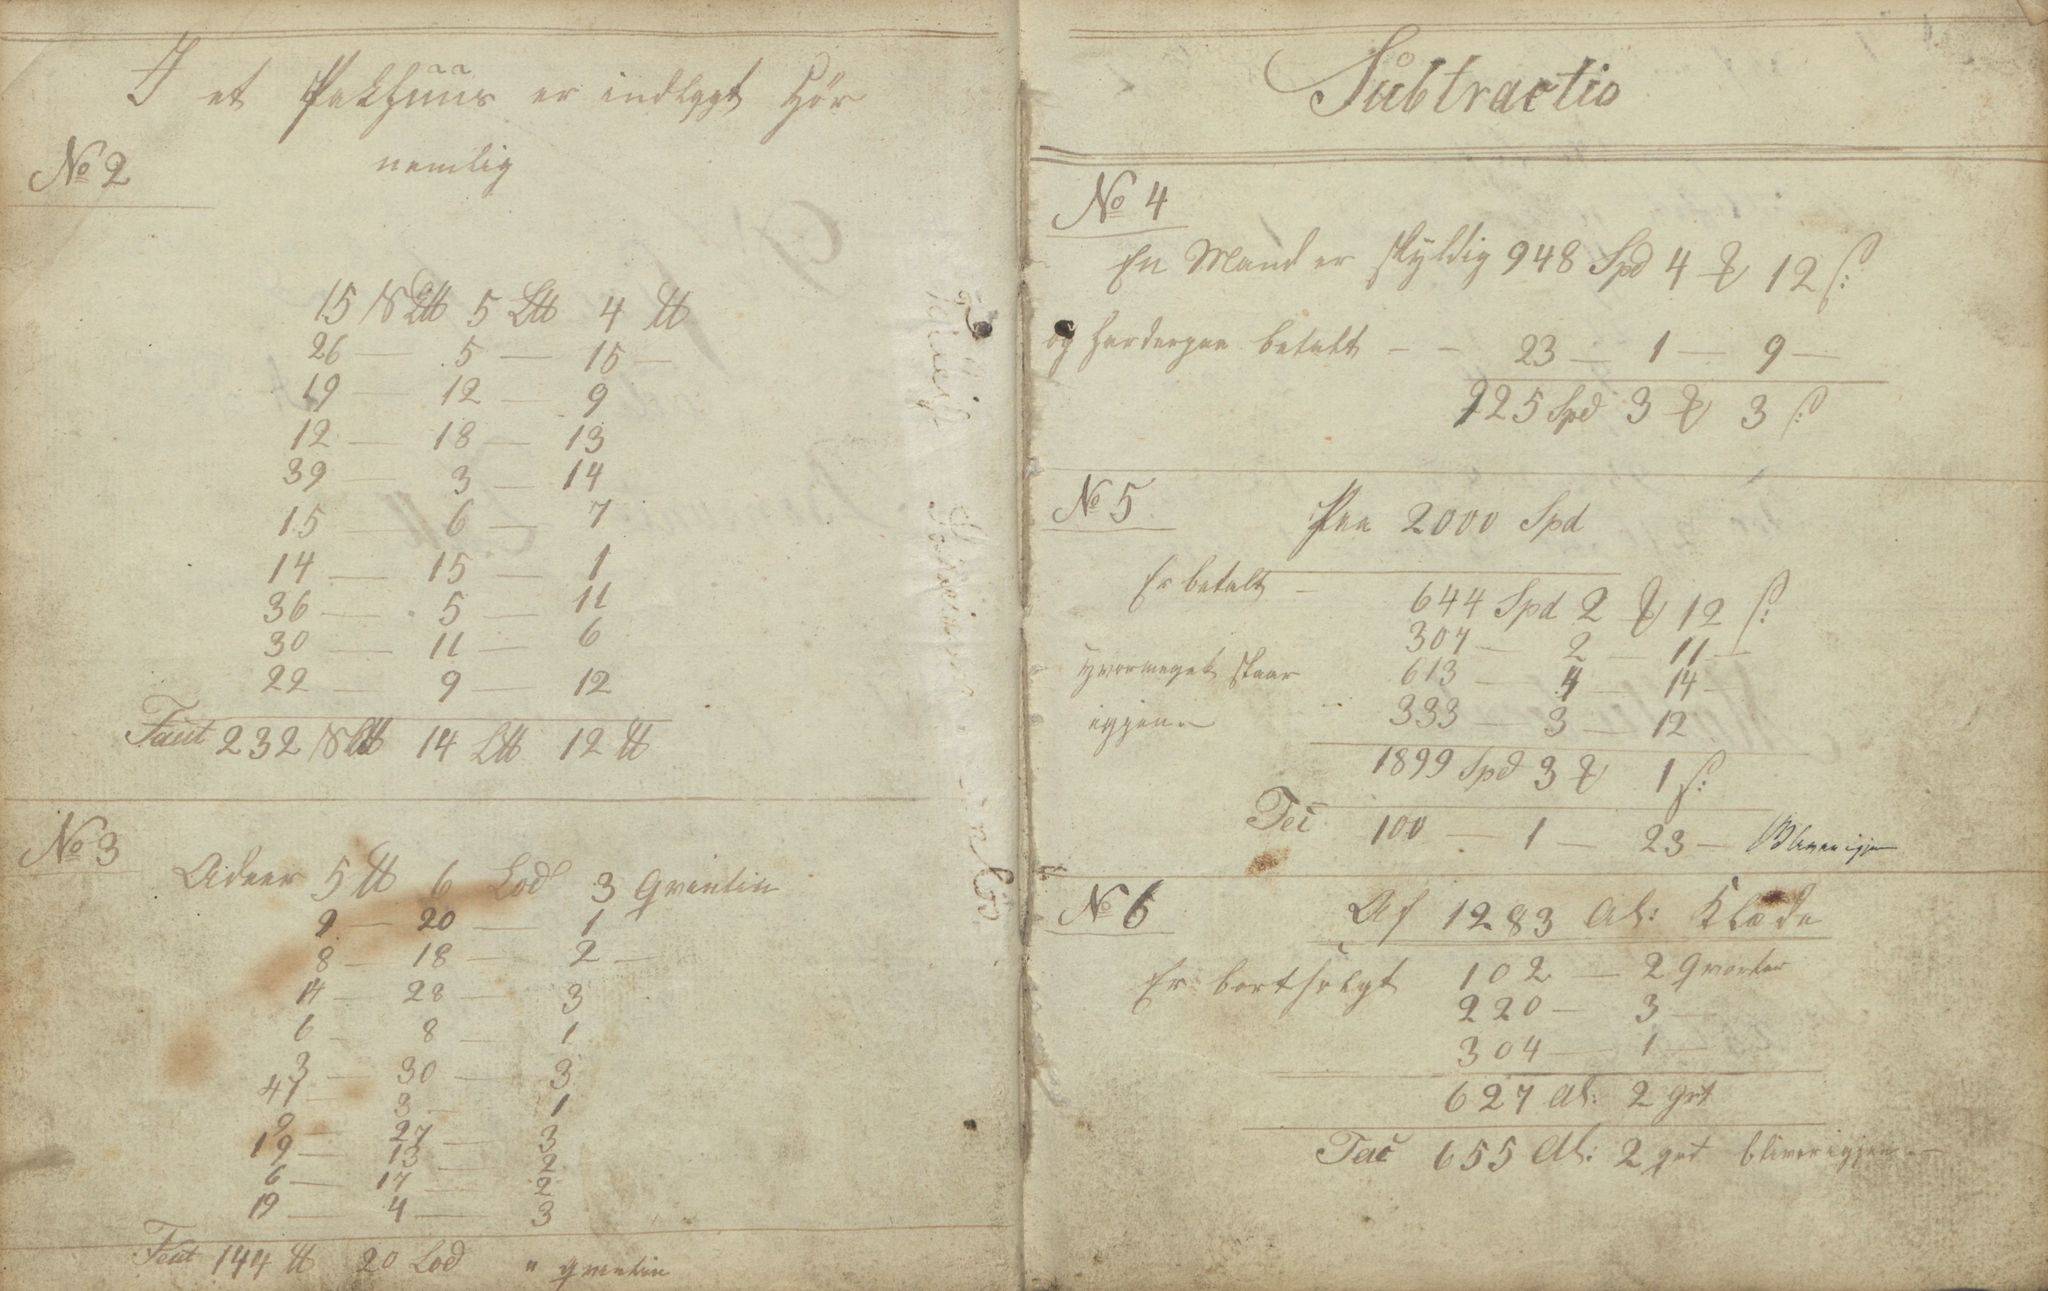 I et Pakhuus er indlagt Hør
nemlig
No 2
15 S℔ 5 L℔ 4 ℔
26 — 5 — 15 —
19 — 12 — 9
12 — 18 — 13
39 — 3 — 14
15 — 6 — 7
14 — 15 — 1
36 — 5 — 11
30 — 11 — 6
22 — 9 — 12
Faut 232 S℔ 14 L℔ 12 ℔
No 3
Adeer 5 ℔ 6 Lod 3 Qvintin
9 — 20 — 1
8 — 18 — 2 —
14 — 28 — 3
6 — 8 — 1
3 — 30 — 3
41 — 3 — 1
9 — 27 — 3
19 — 13 — 2
6 — 17 — 2
19 — 4 — 3
Faut 144 ℔ 20 Lod " qvintin
Subtractio
No 4
En Mand er skyldig 948 Spd 4 ꝑ 12 ß:
og harderpaa betalt — — 23 — 1 — 9 —
925 Spd 3 ꝑ 3 ß
No 5
Paa 2000 Spd
Er betalt — 644 Spd 2 ꝑ 12 ß:
307 — 2 — 11 —
Hvormeget staar 613 — 4 — 14 —
igjen 333 — 3 — 12
1899 Spd 3 ꝑ 1 ß:
Fac 100 — 1 — 23 — Bliver igjen
No 6
Af 1283 Al: Klæde
Er bortsolgt 102 — 2 Qvarter
220 — 3 —
304 — 1 —
627 Al: 2 qrt
Fac 655 Al: 2 qrt bliver igjen —